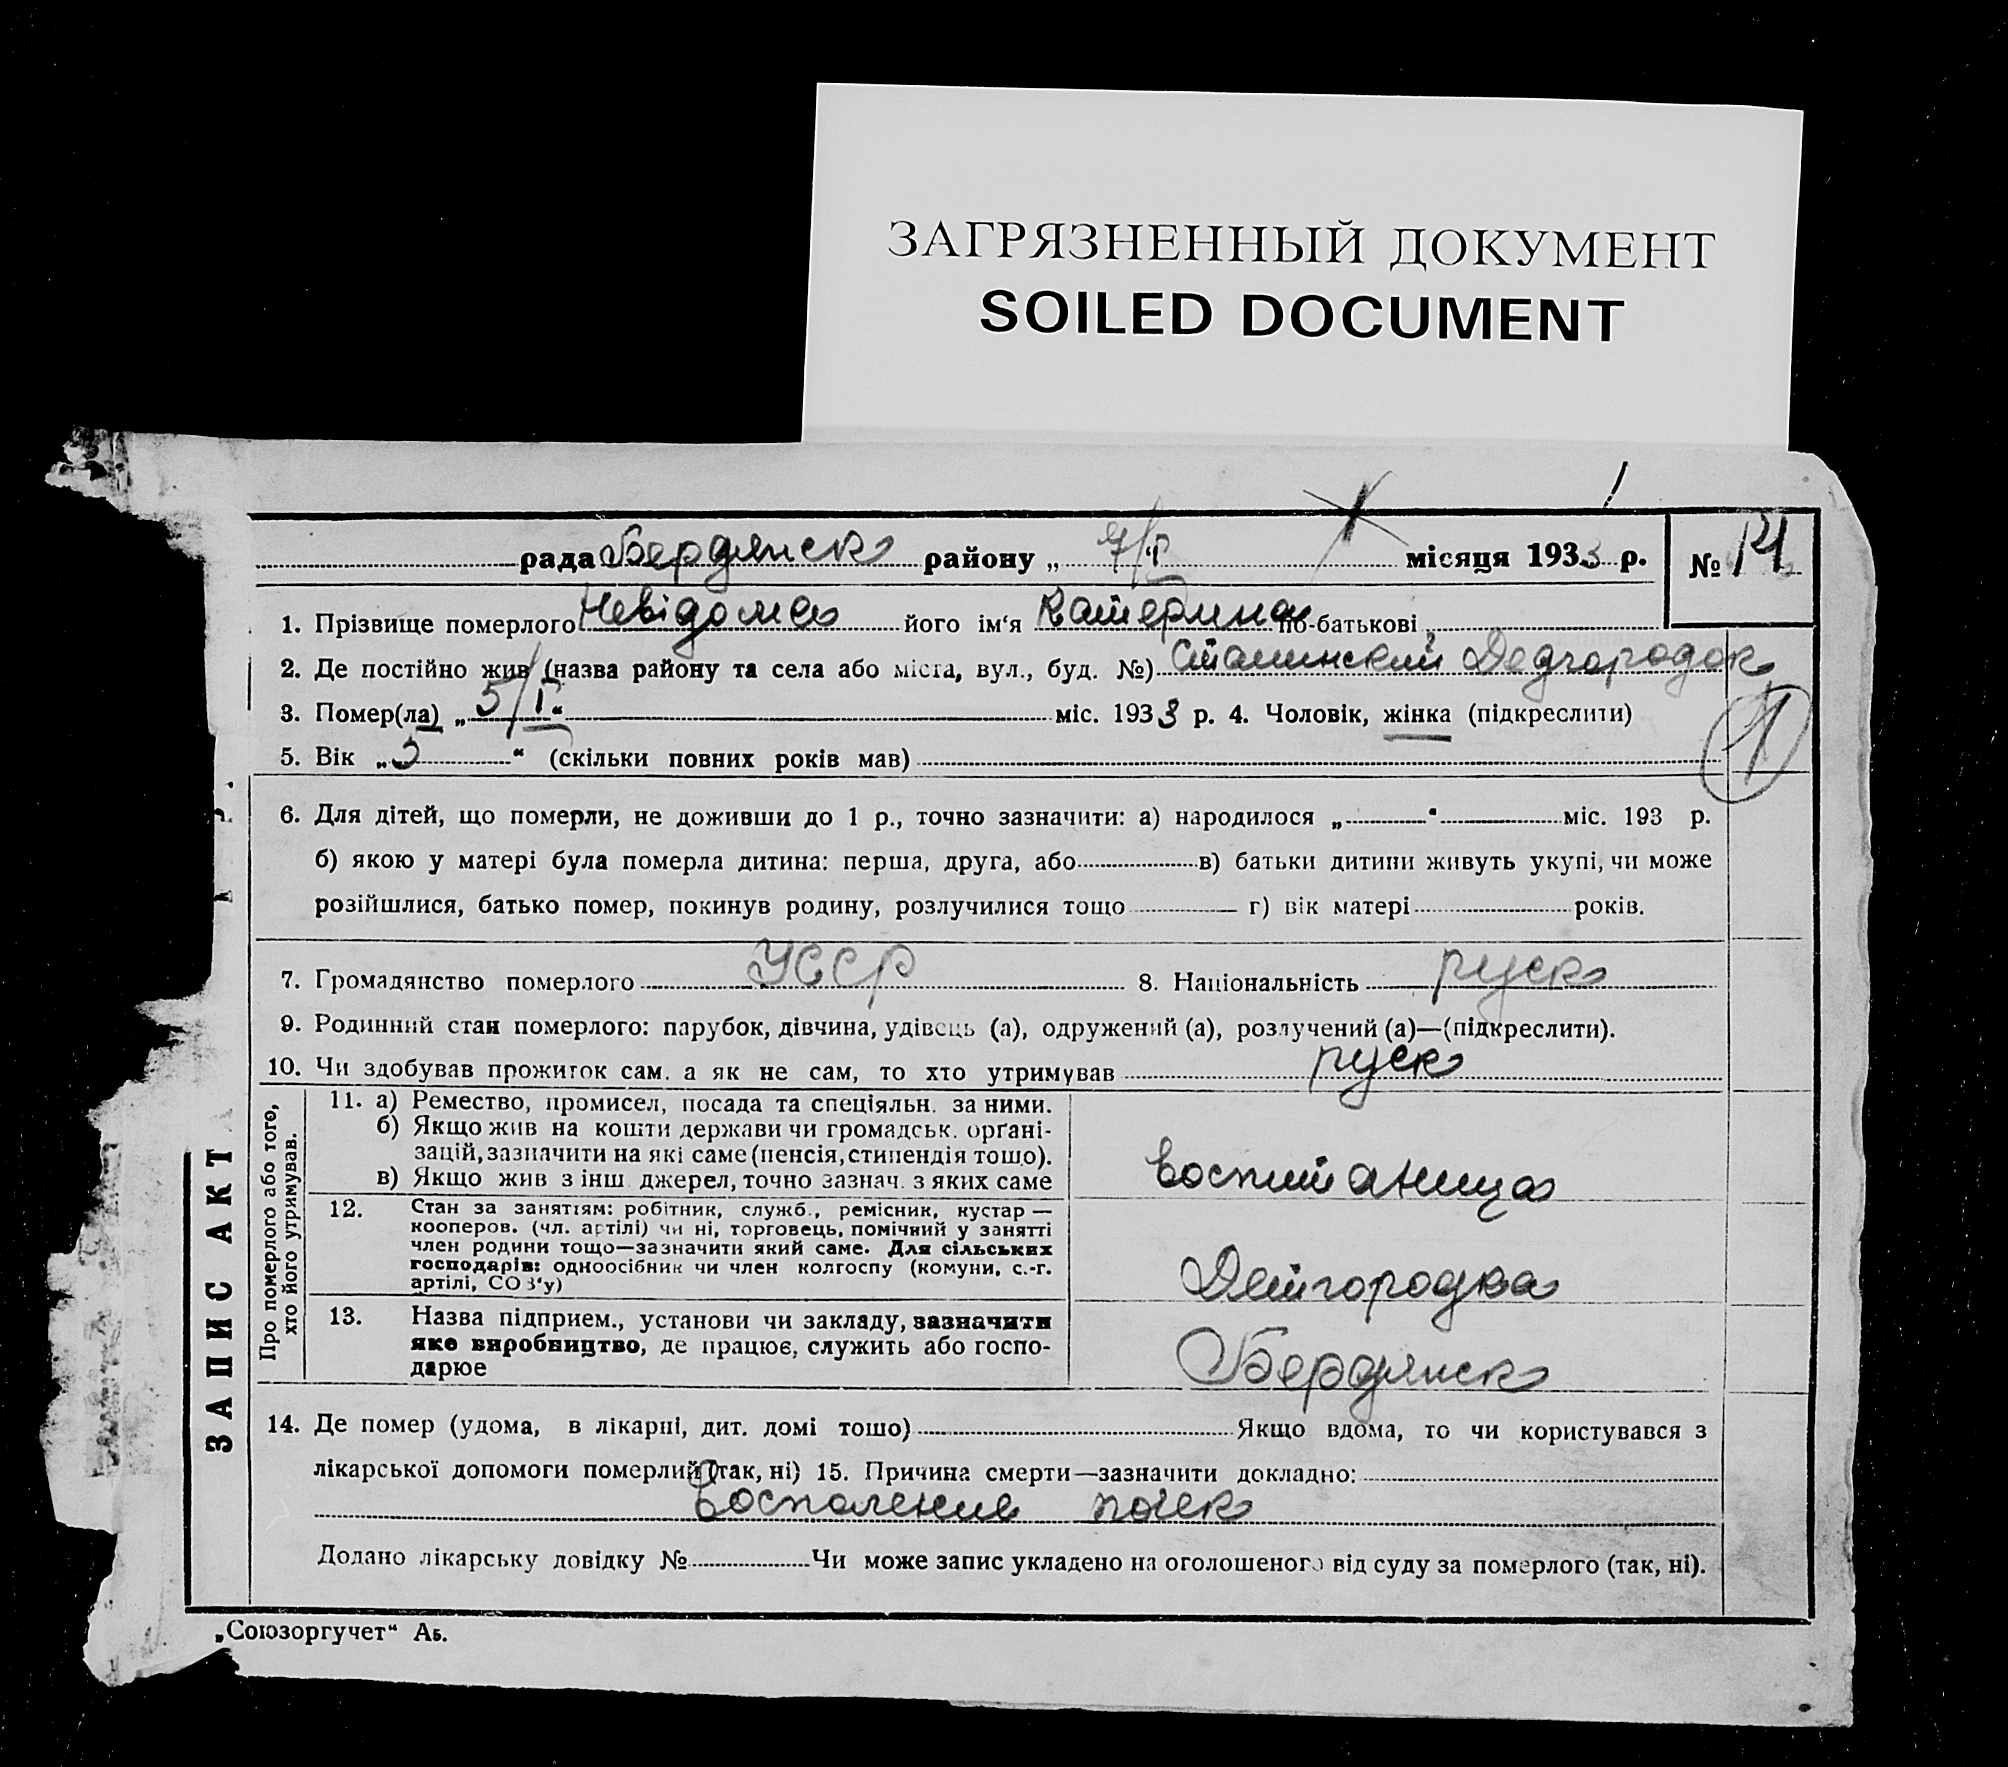 ЗАГРЯЗНЕННЫЙ ДОКУМЕНТ
SOILED DOCUMENT
рада Бердянск району „ 7/I “ місяця 1933 р. № 14
1. Прізвище померлого Невідома його ім‘я Катерина по-батькові
2. Де постійно жив (назва району та села або міста, вул., буд. №) Сталинский Детгородок
3. Помер(ла) „ 5/I “ міс. 1933 р. 4. Чоловік, жінка (підкреслити)
5. Вік „ 3 “ (скільки повних років мав)
1
6. Для дітей, що померли, не доживши до 1 р., точно зазначити: а) народилося „ “ міс. 193 р.
б) якою у матері була померла дитина: перша, друга, або в) батьки дитини живуть укупі, чи може
розійшлися, батько помер, покинув родину, розлучилися тощо г) вік матері років.
7. Громадянство померлого УССР 8. Національність руск
9. Родинний стан померлого: парубок, дівчина, удівець (а), одружений (а), розлучений (а)—(підкреслити).
10. Чи здобував прожиток сам, а як не сам, то хто утримував руск
ЗАПИС АКТ
Про померлого або того,
хто його утримував.
11. а) Ремество, промисел, посада та спеціяльн. за ними.
б) Якщо жив на кошти держави чи громадськ. орґані-
зацій, зазначити на які саме (пенсія, стипендія тощо).
в) Якщо жив з інш. джерел, точно зазнач. з яких саме
воспитаница
12. Стан за заняттям: робітник, служб., ремісник, кустар —
кооперов. (чл. артілі) чи ні, торговець, помічний у занятті
член родини тощо—зазначити який саме. Для сільських
господарів: одноосібник чи член колгоспу (комуни, с.-г.
артілі, СОЗ‘у)
Детгородка
13. Назва підприєм., установи чи закладу, зазначити
яке виробництво, де працює, служить або госпо-
дарює
Бердянск
14. Де помер (удома, в лікарні, дит. домі тощо) Якщо вдома, то чи користувався з
лікарської допомоги померлий (так, ні) 15. Причина смерти—зазначити докладно:
Воспаление почек
Додано лікарську довідку № Чи може запис укладено на оголошеного від суду за померлого (так, ні).
„Союзоргучет“ Аб.